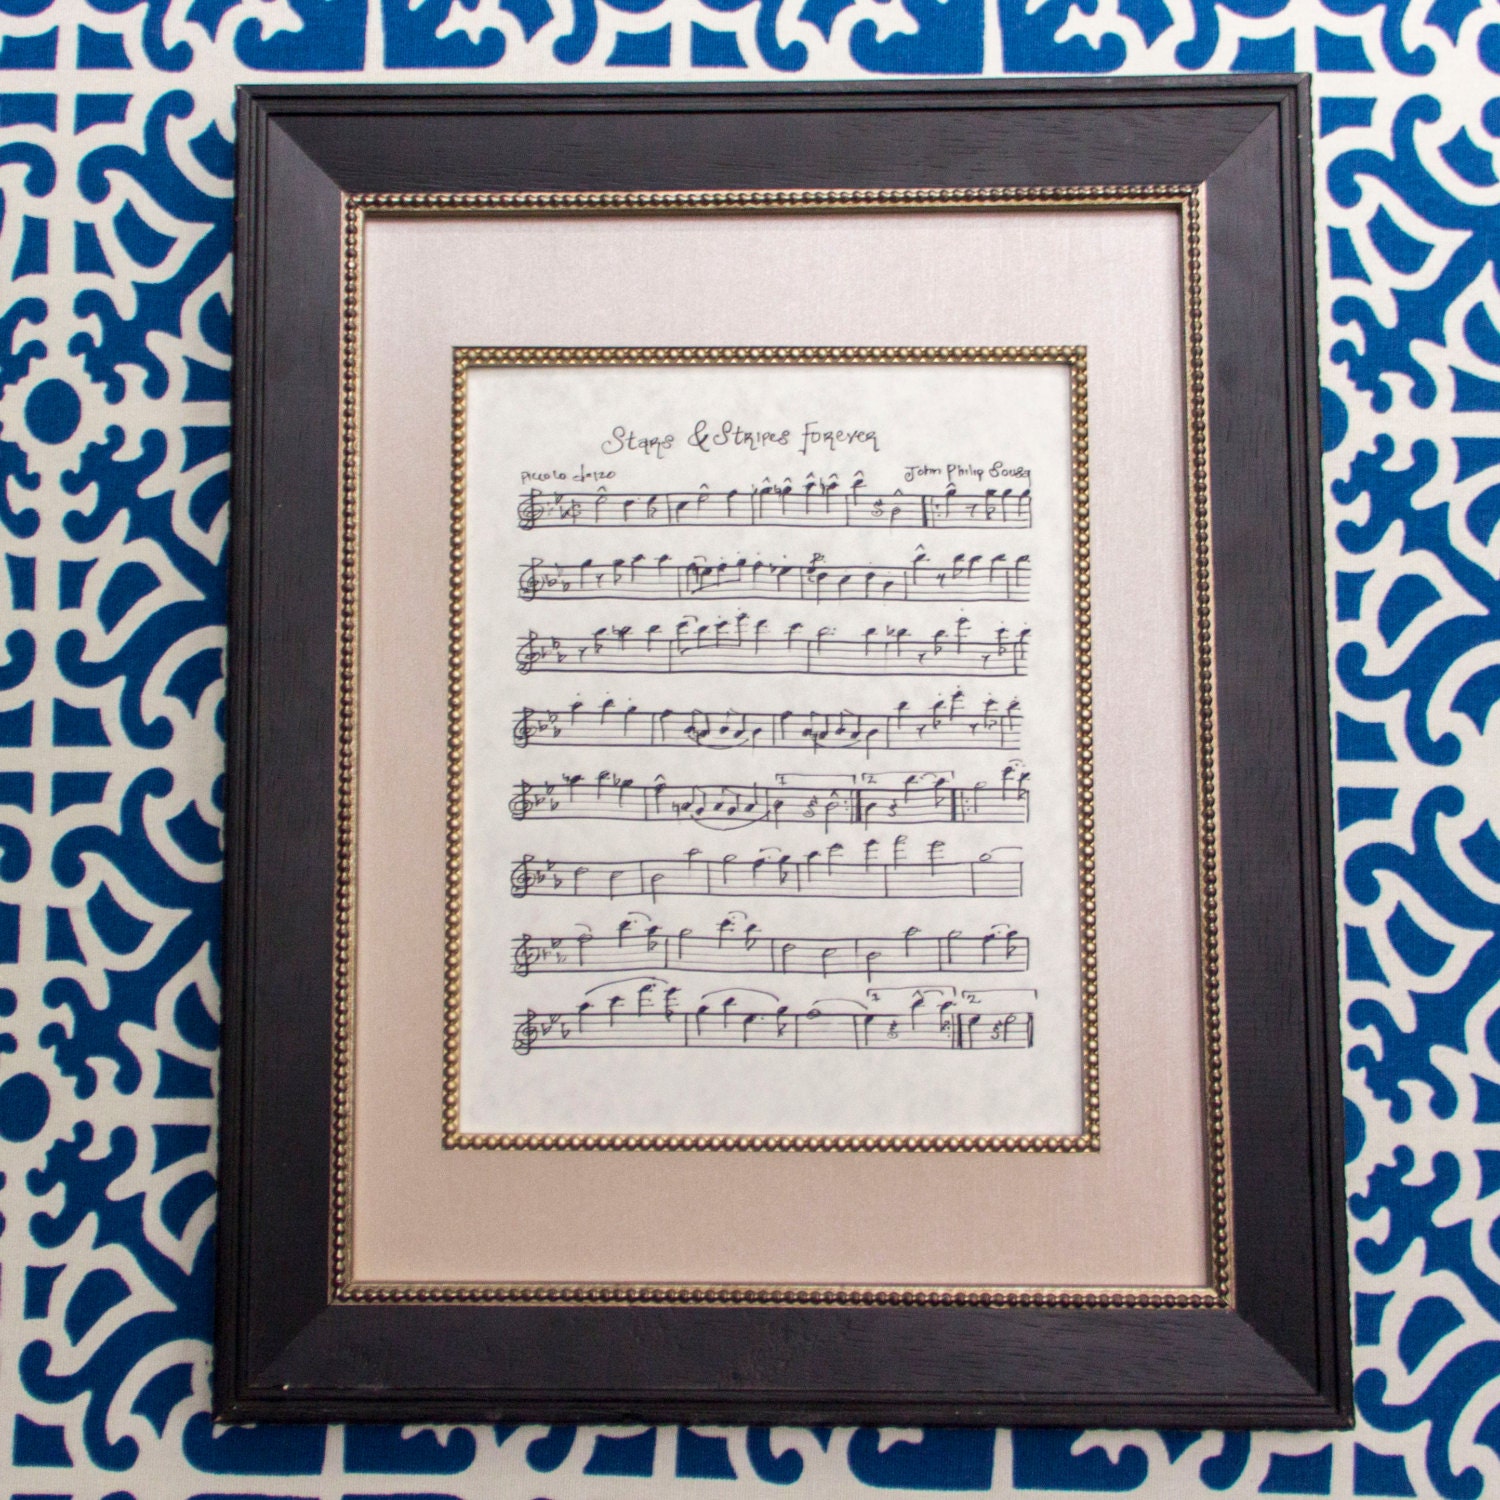 Stars & Stripes Forever
Piccolo
John Philip Sousa
1 2
1 2